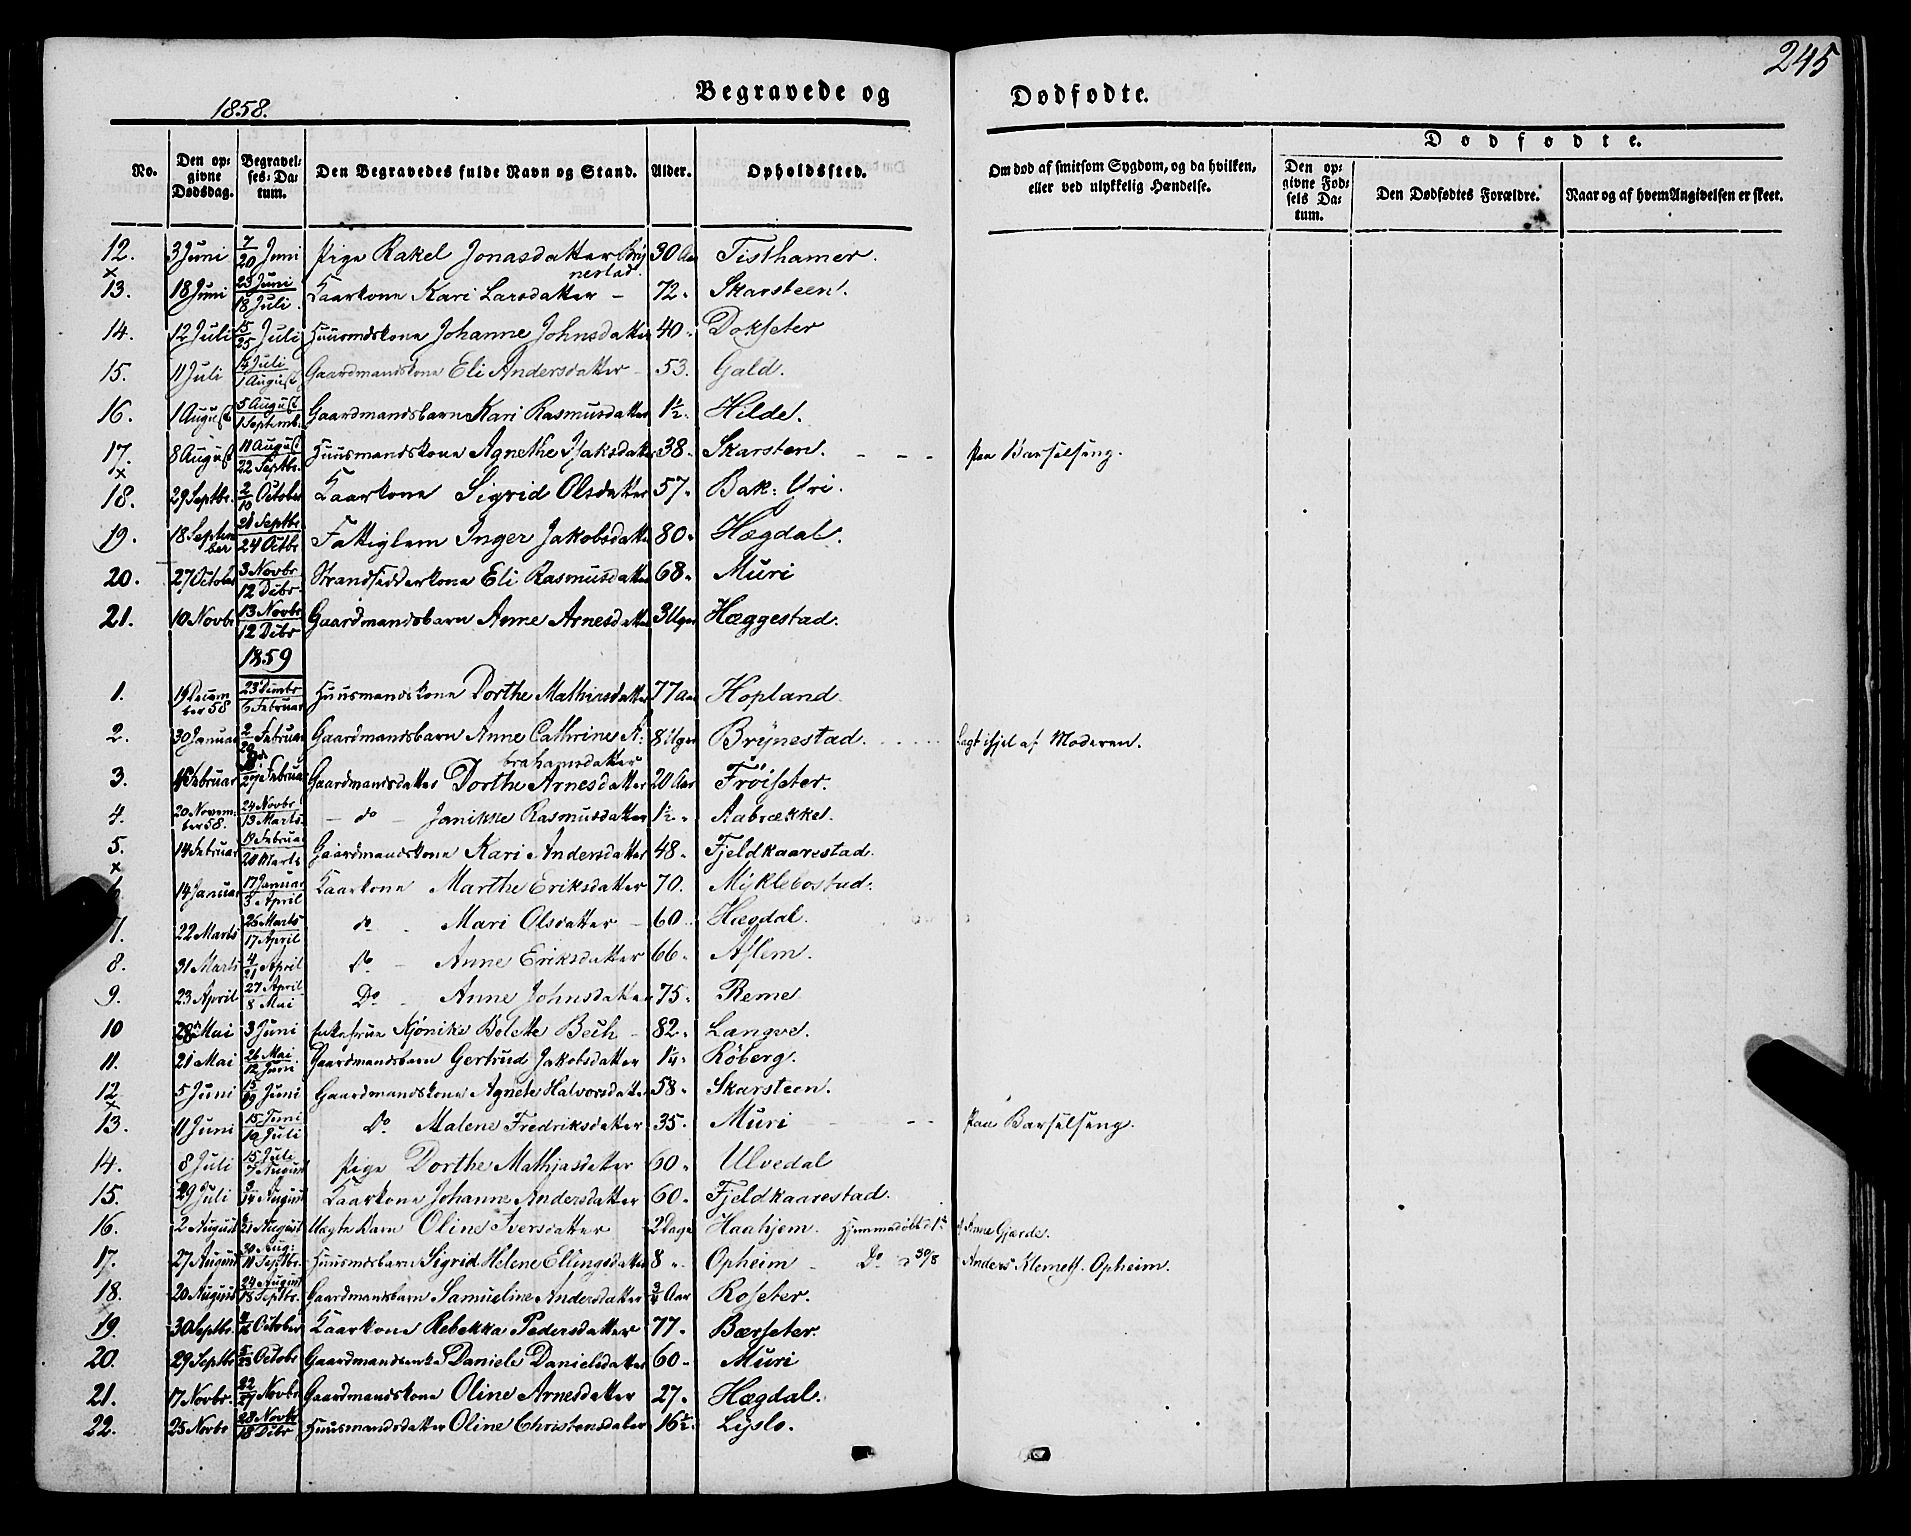 245
Begravede og Dødfødte.
1858.
Dødfødte.
No. Den opgivne Dødsdag. Begravelses-Datum. Den Begravedes fulde Navn og Stand. Alder. Opholdssted. Om død af smitsom Sygdom, og da hvilken, eller ved ulykkelig Hændelse. Den opgivne Fødsels Datum. Den Dødfødtes Forældre. Naar og af hvem Angivelsen er skeet.
12. 3 Juni 7/20 Juni Pige Rakel Jonasdatter Brynestad 30 Aar Tisthamer.
13. 18 Juni 23 Juni / 18 Juli Kaarkone Kari Larsdatter 72 Skarsteen.
14. 12 Juli 15/25 Juli Huusmdskone Johanne Johnsdatter 40 Dokseter
15. 11 Juli 14 Juli / 1 August Gaardmandskone Eli Andersdatter 53. Gald.
16. 1 August 5 August / 1 Septemb. Gaardmandsbarn Kari Rasmusdatter 1½ Hilde.
17. 8 August 11 August / 22 Septbr. Huusmandskone Agnethe Isaksdatter 38 Skarsten. - - - paa Barselseng.
18. 29 Septbr. 2/10 October Kaarkone Sigrid Olsdatter 57 Bak: Uri.
19. 18 September 21 Septbr / 24 Octbr Fattiglem Inger Jakobsdatter 80 Hægdal.
20. 27 October 3 Novbr / 12 Debr Strandsidderkone Eli Rasmusdatter 68 Muri
21. 10 Novbr 13 Novbr / 12 Debr Gaardmandsbarn Anne Arnesdatter 3 Uger Hæggestad.
1859
1. 19 December 58 23 Dembr / 6 Februar Huusmandskone Dorthe Mathiasdatter 77 Aar Hopland
2. 30 Januar 2/20 Februar Gaardmandsbarn Anne Cathrine Abrahamsdatter 8 Uger Brynestad. Lagt ihjel af Moderen.
3. 15 Februar /27 Februar Gaardmandsdatter Dorthe Arnesdatter 20 Aar Frøiseter.
4. 20 November 58. 24 Novbr / 13 Marts do Janikke Rasmusdatter 1½ Aabrække.
5. 14 Februar 19 Februar / 20 Marts Gaardmandskone Kari Andersdatter 48 Fjeldkaarestad.
14 Januar 17 Januar / 3 April Kaarkone Marthe Eriksdatter 70. Myklebostad.
7. 22 Marts 25 Marts / 17 April do Mari Olsdatter 60 Hægdal.
8. 31 Marts 4/21 April do Anne Eriksdatter 66 Aslem.
9. 23 April 27 April / 8 Mai Do Anne Johnsdatter 75 Reme
10 28 Mai 3 Juni Enkefrue Bolette Bech 82 Langve.
11. 21 Mai 26 Mai / 12 Juni Gaardmandsbarn Gertrud Jakobsdatter 1¼ Røberg.
12 5 Juni 15/19 Juni Gaardmandskone Agnete Halvorsdatter 58 Skarsteen.
13. 11 Juni 15 Juni / 10 Juli Do Malene Fredriksdatter 35 Muri - - - Paa Barselseng.
14. 8 Juli 15 Juli / 7 August Pige Dorthe Mathiasdatter 60 Ulvedal
15. 29 Juli 3/14 August Kaarkone Johanne Andersdatter 60 Fjeldkaarestad.
16. 2 August /21 August Uægte Barn Oline Iversdatter 2 Dage Haahjem. Hjemmedøbt d 1st af Anne Gjærde.
17. 27 August 30 Aug: / 11 Septbr. Huusmdsbarn Sigrid Helene Ellingsdatter 8 Opheim Do 30/8 Anders Klemets. Opheim.
18. 20 August 24 August / 18 Septbr. Gaardmandsbarn Samueline Andersdatter ¾ Aar Roseter.
19. 30 Septbr. /16 October Kaarkone Rebekka Pedersdatter 77 Bærseter.
20. 29 Septbr 5/23 Octobr Gaardmandsenke Daniele Danielsdatter 60 Muri
21. 17 Novbr. 22/27 Novbr Gaardmandskone Oline Arnesdatter 27 Hægdal.
22. 25 Novbr 28 Novbr / 18 Debr Huusmandsdatter Oline Christensdater 16½ Lyslo.